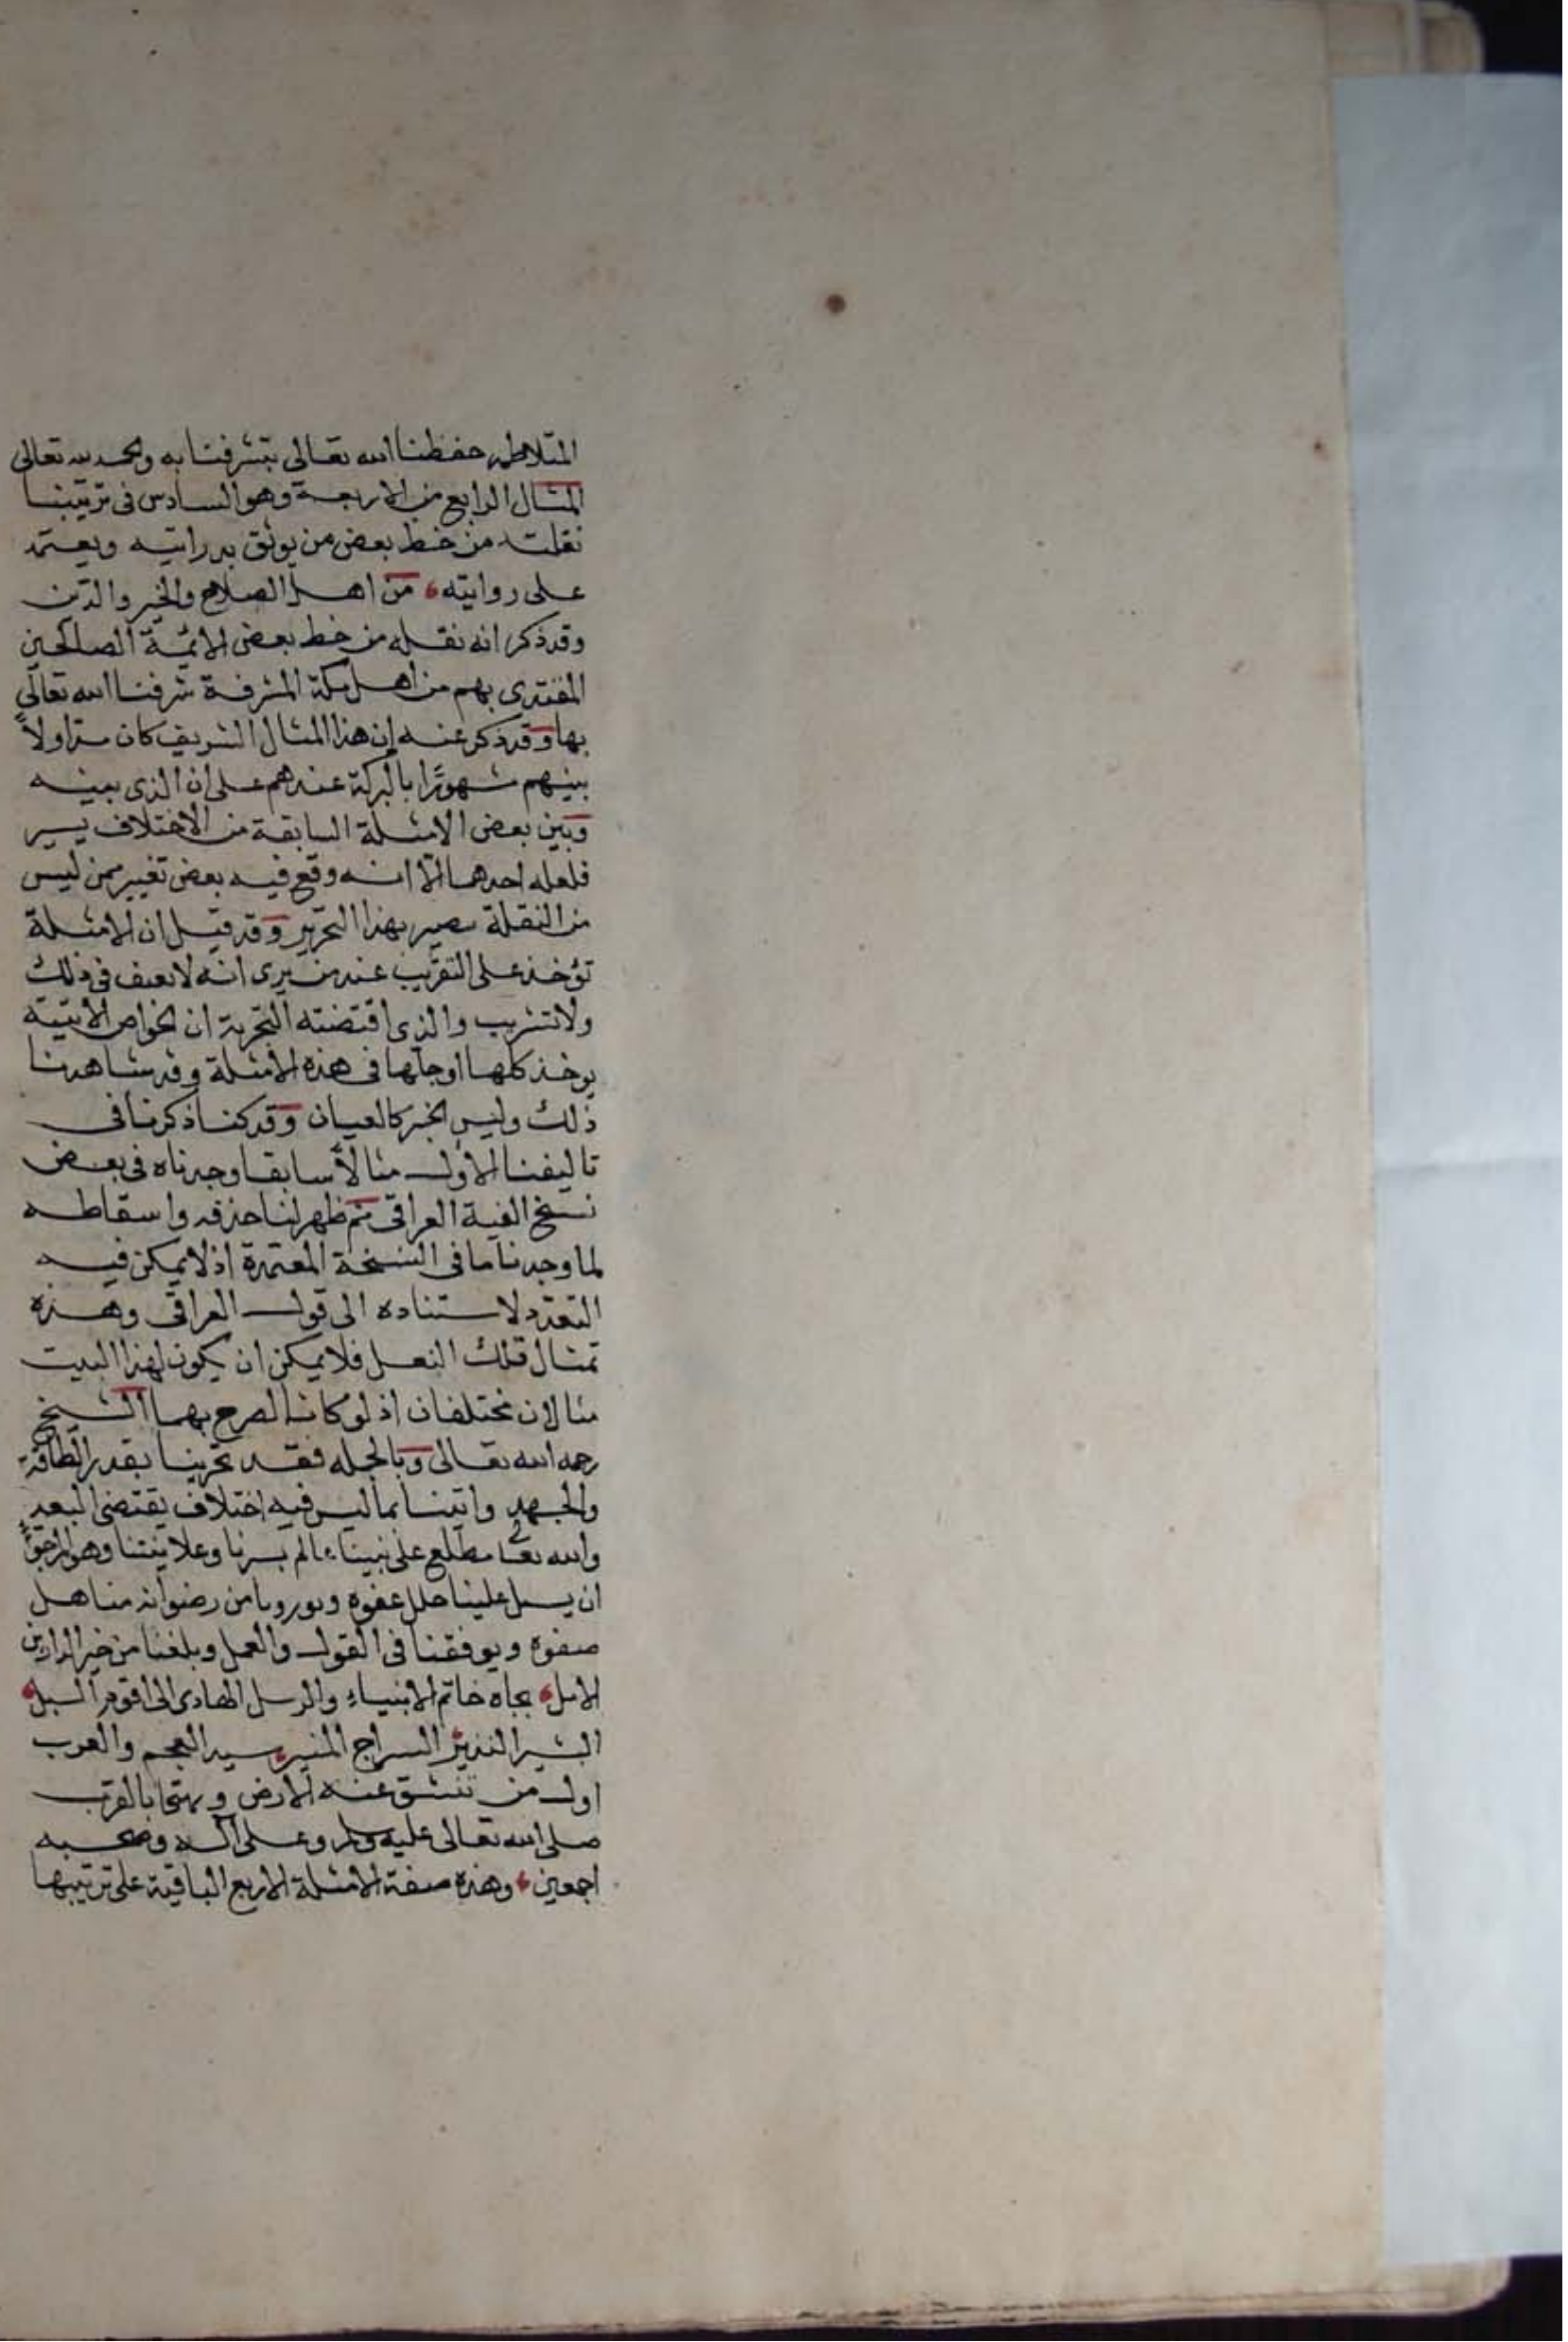 المتلاطمه حفظنا الله تعالى بتشرفنا به والحمد لله تعالى
المثال الرابع من الاربعة وهو السادس فى ترتيبنا
نقلته من خط بعض من يوثق بدرايته ويعتمد
على روايته، من اهل الصلاح والخير والدين
وقد ذكر انه نقله من خط بعض الائمة الصالحين
المقتدى بهم من اهل مكة المشرفة شرفنا الله تعالى
بها وقد ذكر عنه ان هذا المثال الشريف كان متداولاً
بينهم مشهورًا بالبركة عندهم على ان الذى بينه
وبين بعض الامثلة السابقة من الاختلاف يسير
فلعله احدهما الا انه وقع فيه بعض تغيير ممن ليس
من النقلة بصير بهذا التحرير وقد قيل ان الامثلة
تؤخذ على التقريب عند من يرى انه لا تعنف فى ذلك
ولا تثريب والذى اقتضته التجربة ان الخواص الاتيته
يوخذ كلها اوجلها فى هذه الامثلة وقد شاهدنا
ذلك وليس الخبر كالعيان وقد كنا ذكرنا فى
تاليفنا الاول مثالاً سابقا وجدناه فى بعض
نسخ الفية العراقى ثم ظهر لنا حذفه واسقاطه
لما وجدنا ما فى النسخة المعتمدة اذ لا يمكن فيه
التعدد لاستناده الى قول العراقى وهذه
تمثال تلك النعل فلا يمكن ان يكون لهذا البيت
مثالان مختلفان اذ لو كانا لصرح بهما الشيخ
رحمه الله تعالى وبالجمله فقد تحرينا بقدر الطاقة
والجهد واتينا بما ليس فيه اختلاف يقتضى البعد
والله تعا مطلع على نبينا عالم بسرنا وعلانيتنا وهو المرجوّ
ان يسبل علينا حلل عفوه ويوردنا من رضوانه مناهل
صفوه ويوفقنا فى القول والعمل وبلغنا من خير الدارين
الامل، بجاه خاتم الانبياء والرسل الهادى الى اقوم السبل،
البشير النذير السراج المنير سيد العجم والعرب
اول من تنشق عنه الارض بالقرب
صلى الله تعالى عليه وسلم وعلى آله وصحبه
اجمعين، وهذه صفة الامثلة الاربع الباقية على ترتيبها